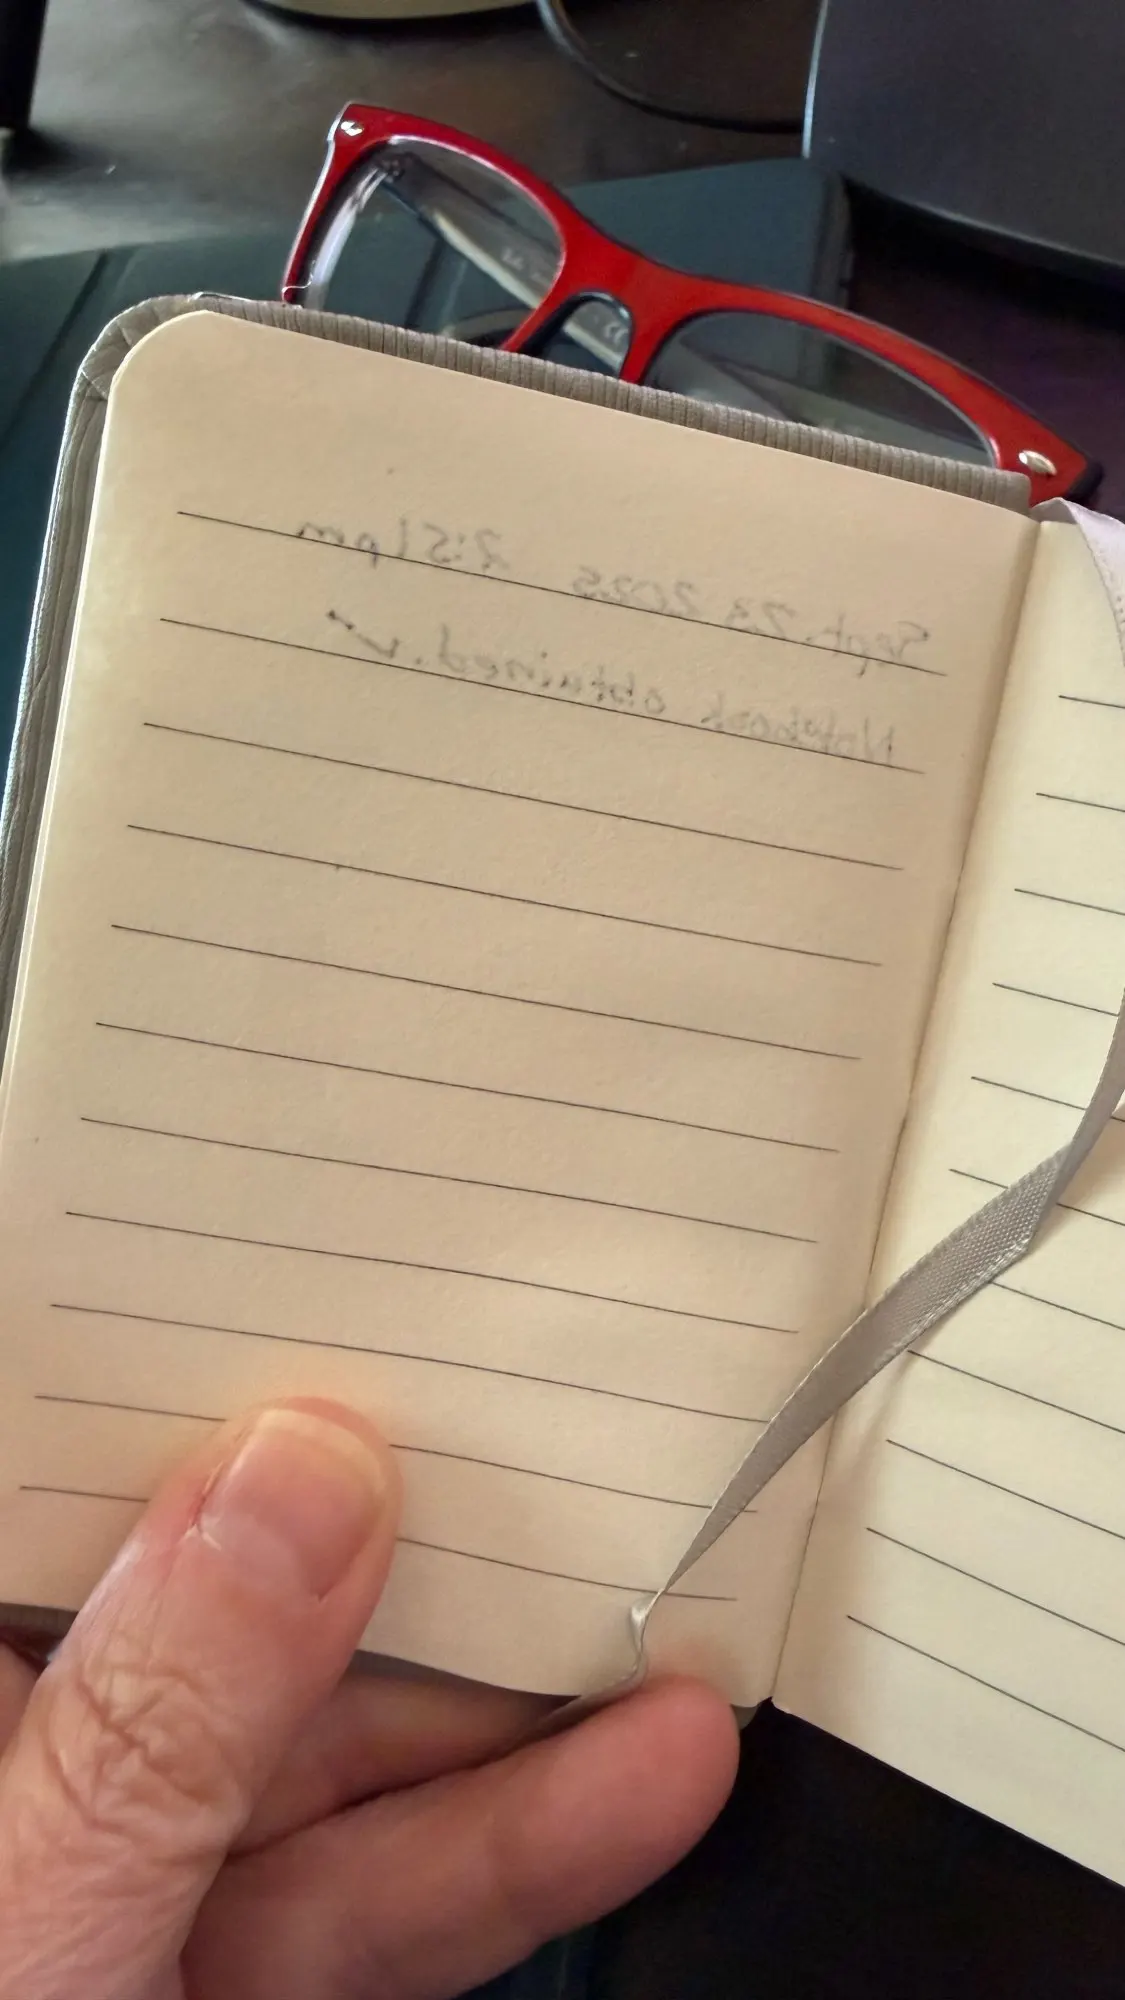 Sept. 23 2025 2:51pm
Notebook obtained. ✓